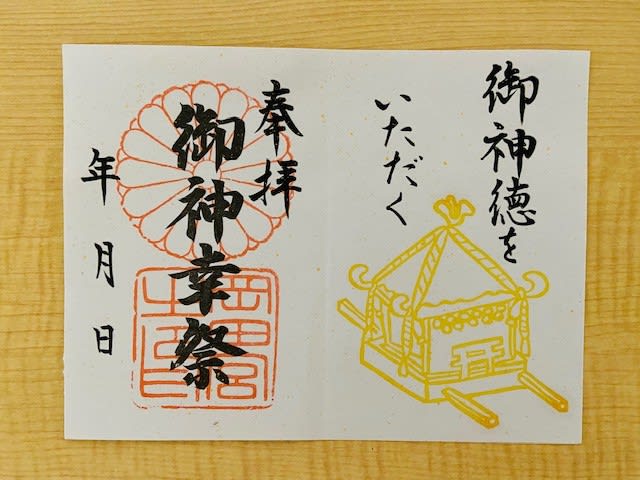 御神徳を
いただく
奉拝
御神幸祭
年 月 日